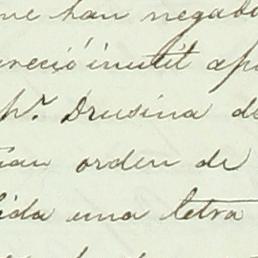 me han negado
reció inutil
pr. Drusina de
orden de
ida una letra